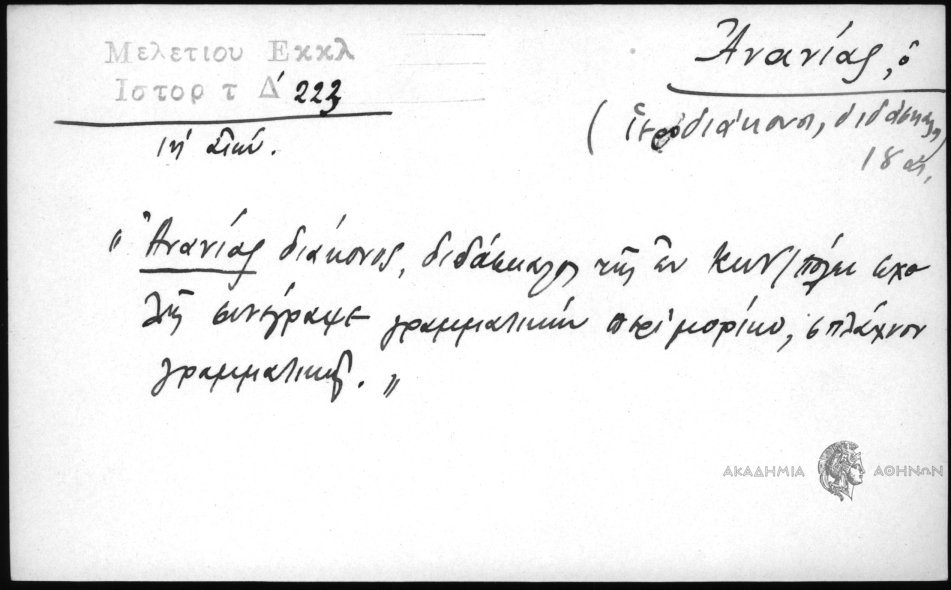 Μελετιου Εκκλ
Ιστορ τ Δ' 223
ιη' αἰών.
Ἀνανίας, ὁ
(ἱεροδιάκονος, διδάσκαλος
18 αἰ.
"Ἀνανίας διάκονος, διδάσκαλος τῆς ἐν Κων/πόλει σχο
λῆς συνέγραψε γραμματικὴν περὶ μορίων, σπλάχνον
γραμματικῆς."
ΑΚΑΔΗΜΙΑ ΑΘΗΝΩΝ